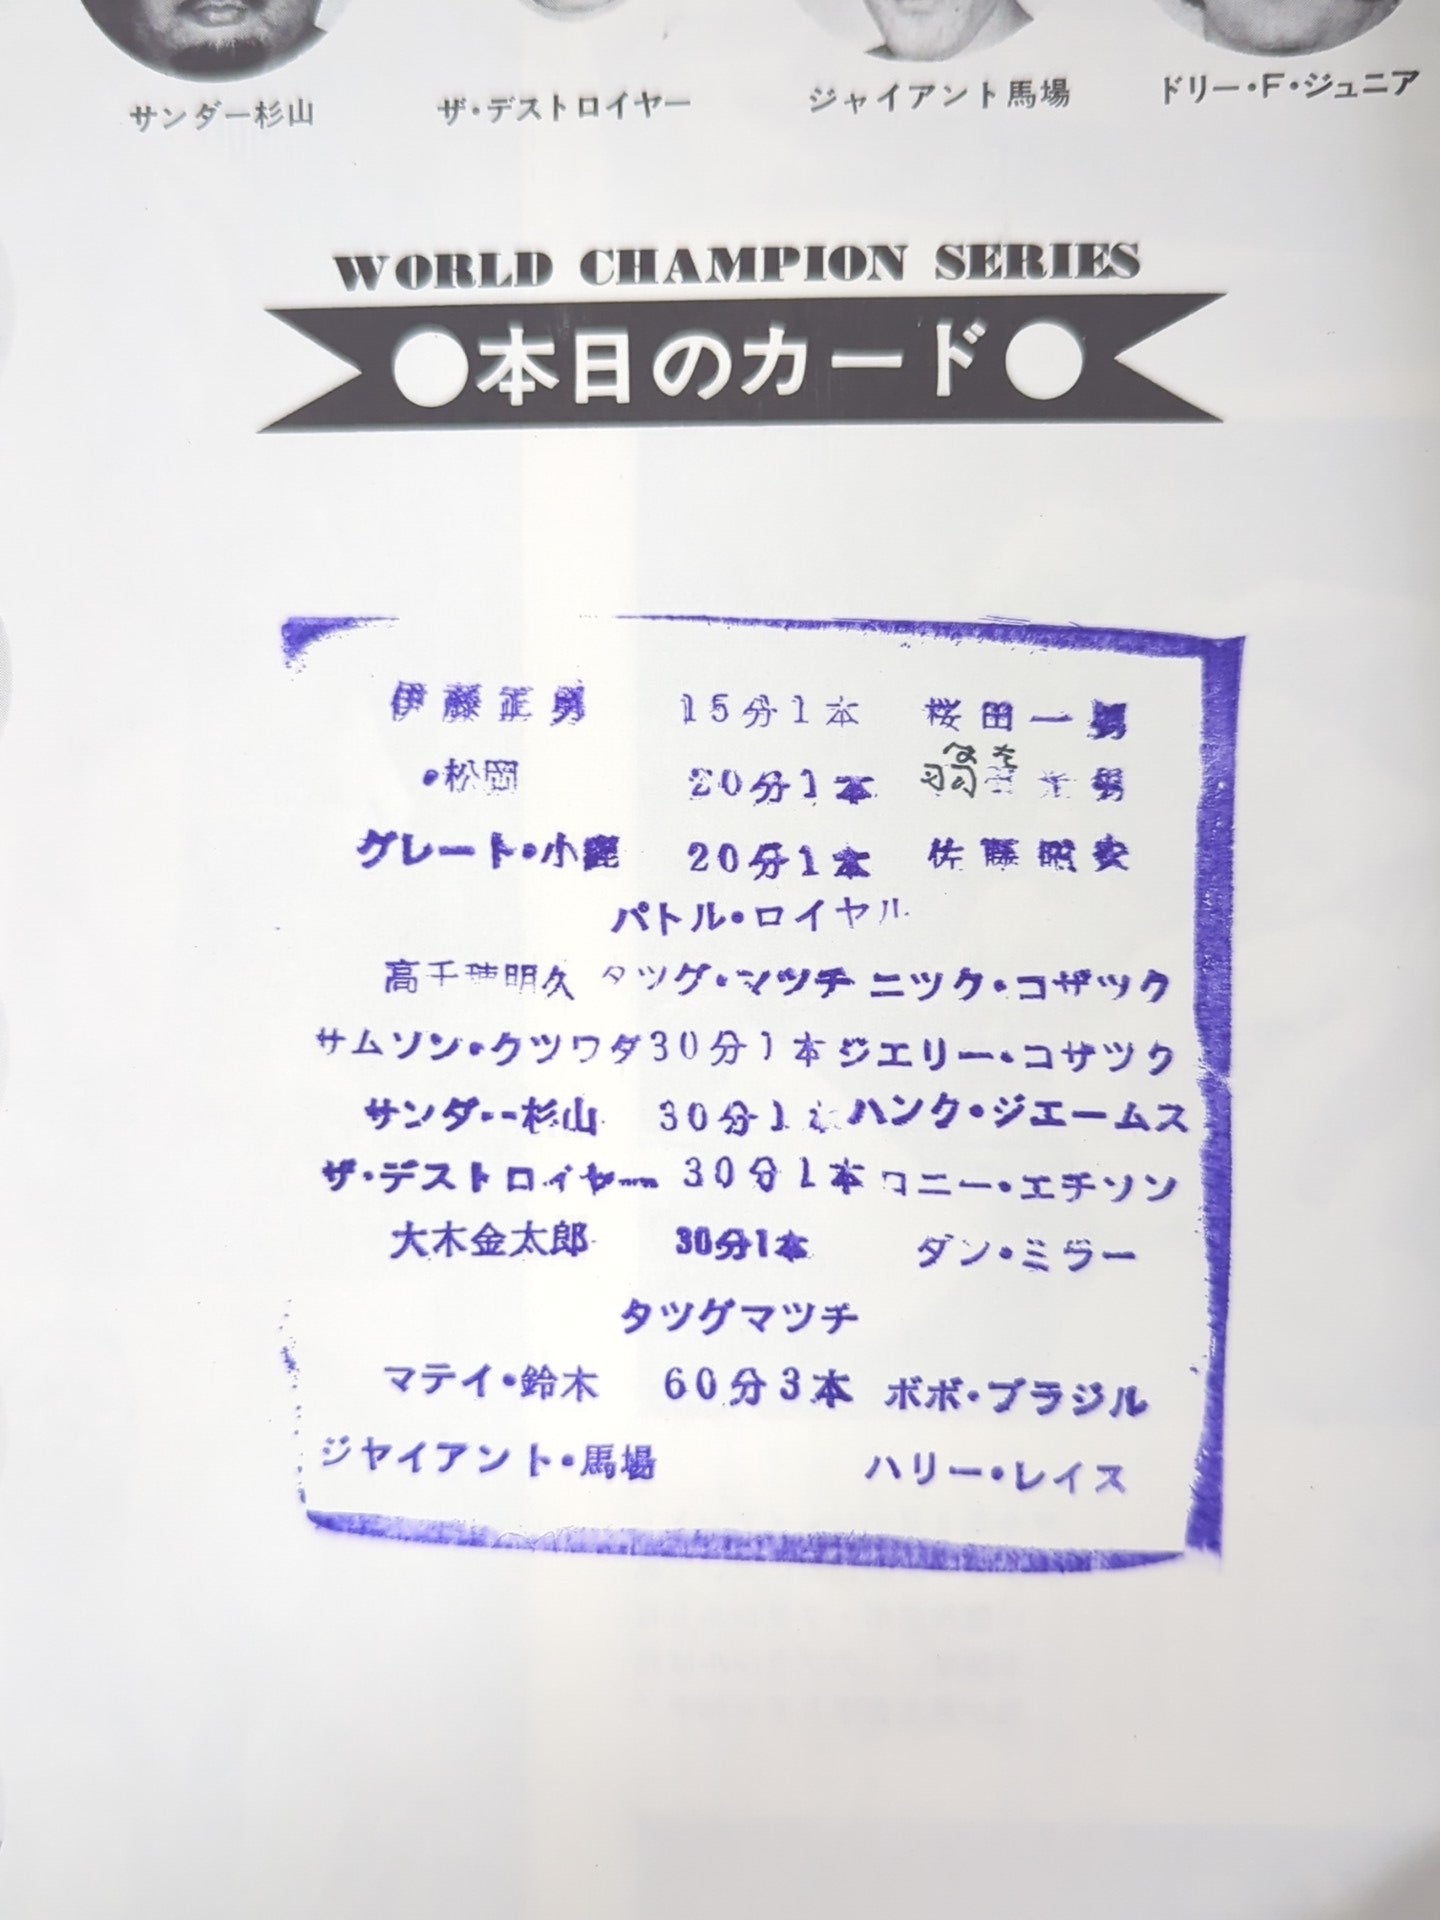 サンダー杉山 ザ・デストロイヤー ジャイアント馬場 ドリー・F・ジュニア
WORLD CHAMPION SERIES
●本日のカード●
伊藤正男 15分1本 桜田一男
・松岡 20分1本 羽 男
グレート・小鹿 20分1本 佐藤昭安
バトル・ロイヤル
高千穂明久 タツグ・マツチ ニツク・コザツク
サムソン・クツワダ 30分1本 ジエリー・コサツク
サンダー杉山 30分1本 ハンク・ジエームス
ザ・デストロイヤー 30分1本 ロニー・エチソン
大木金太郎 30分1本 ダン・ミラー
タツグマツチ
マテイ・鈴木 60分3本 ボボ・ブラジル
ジヤイアント・馬場 ハリー・レイス